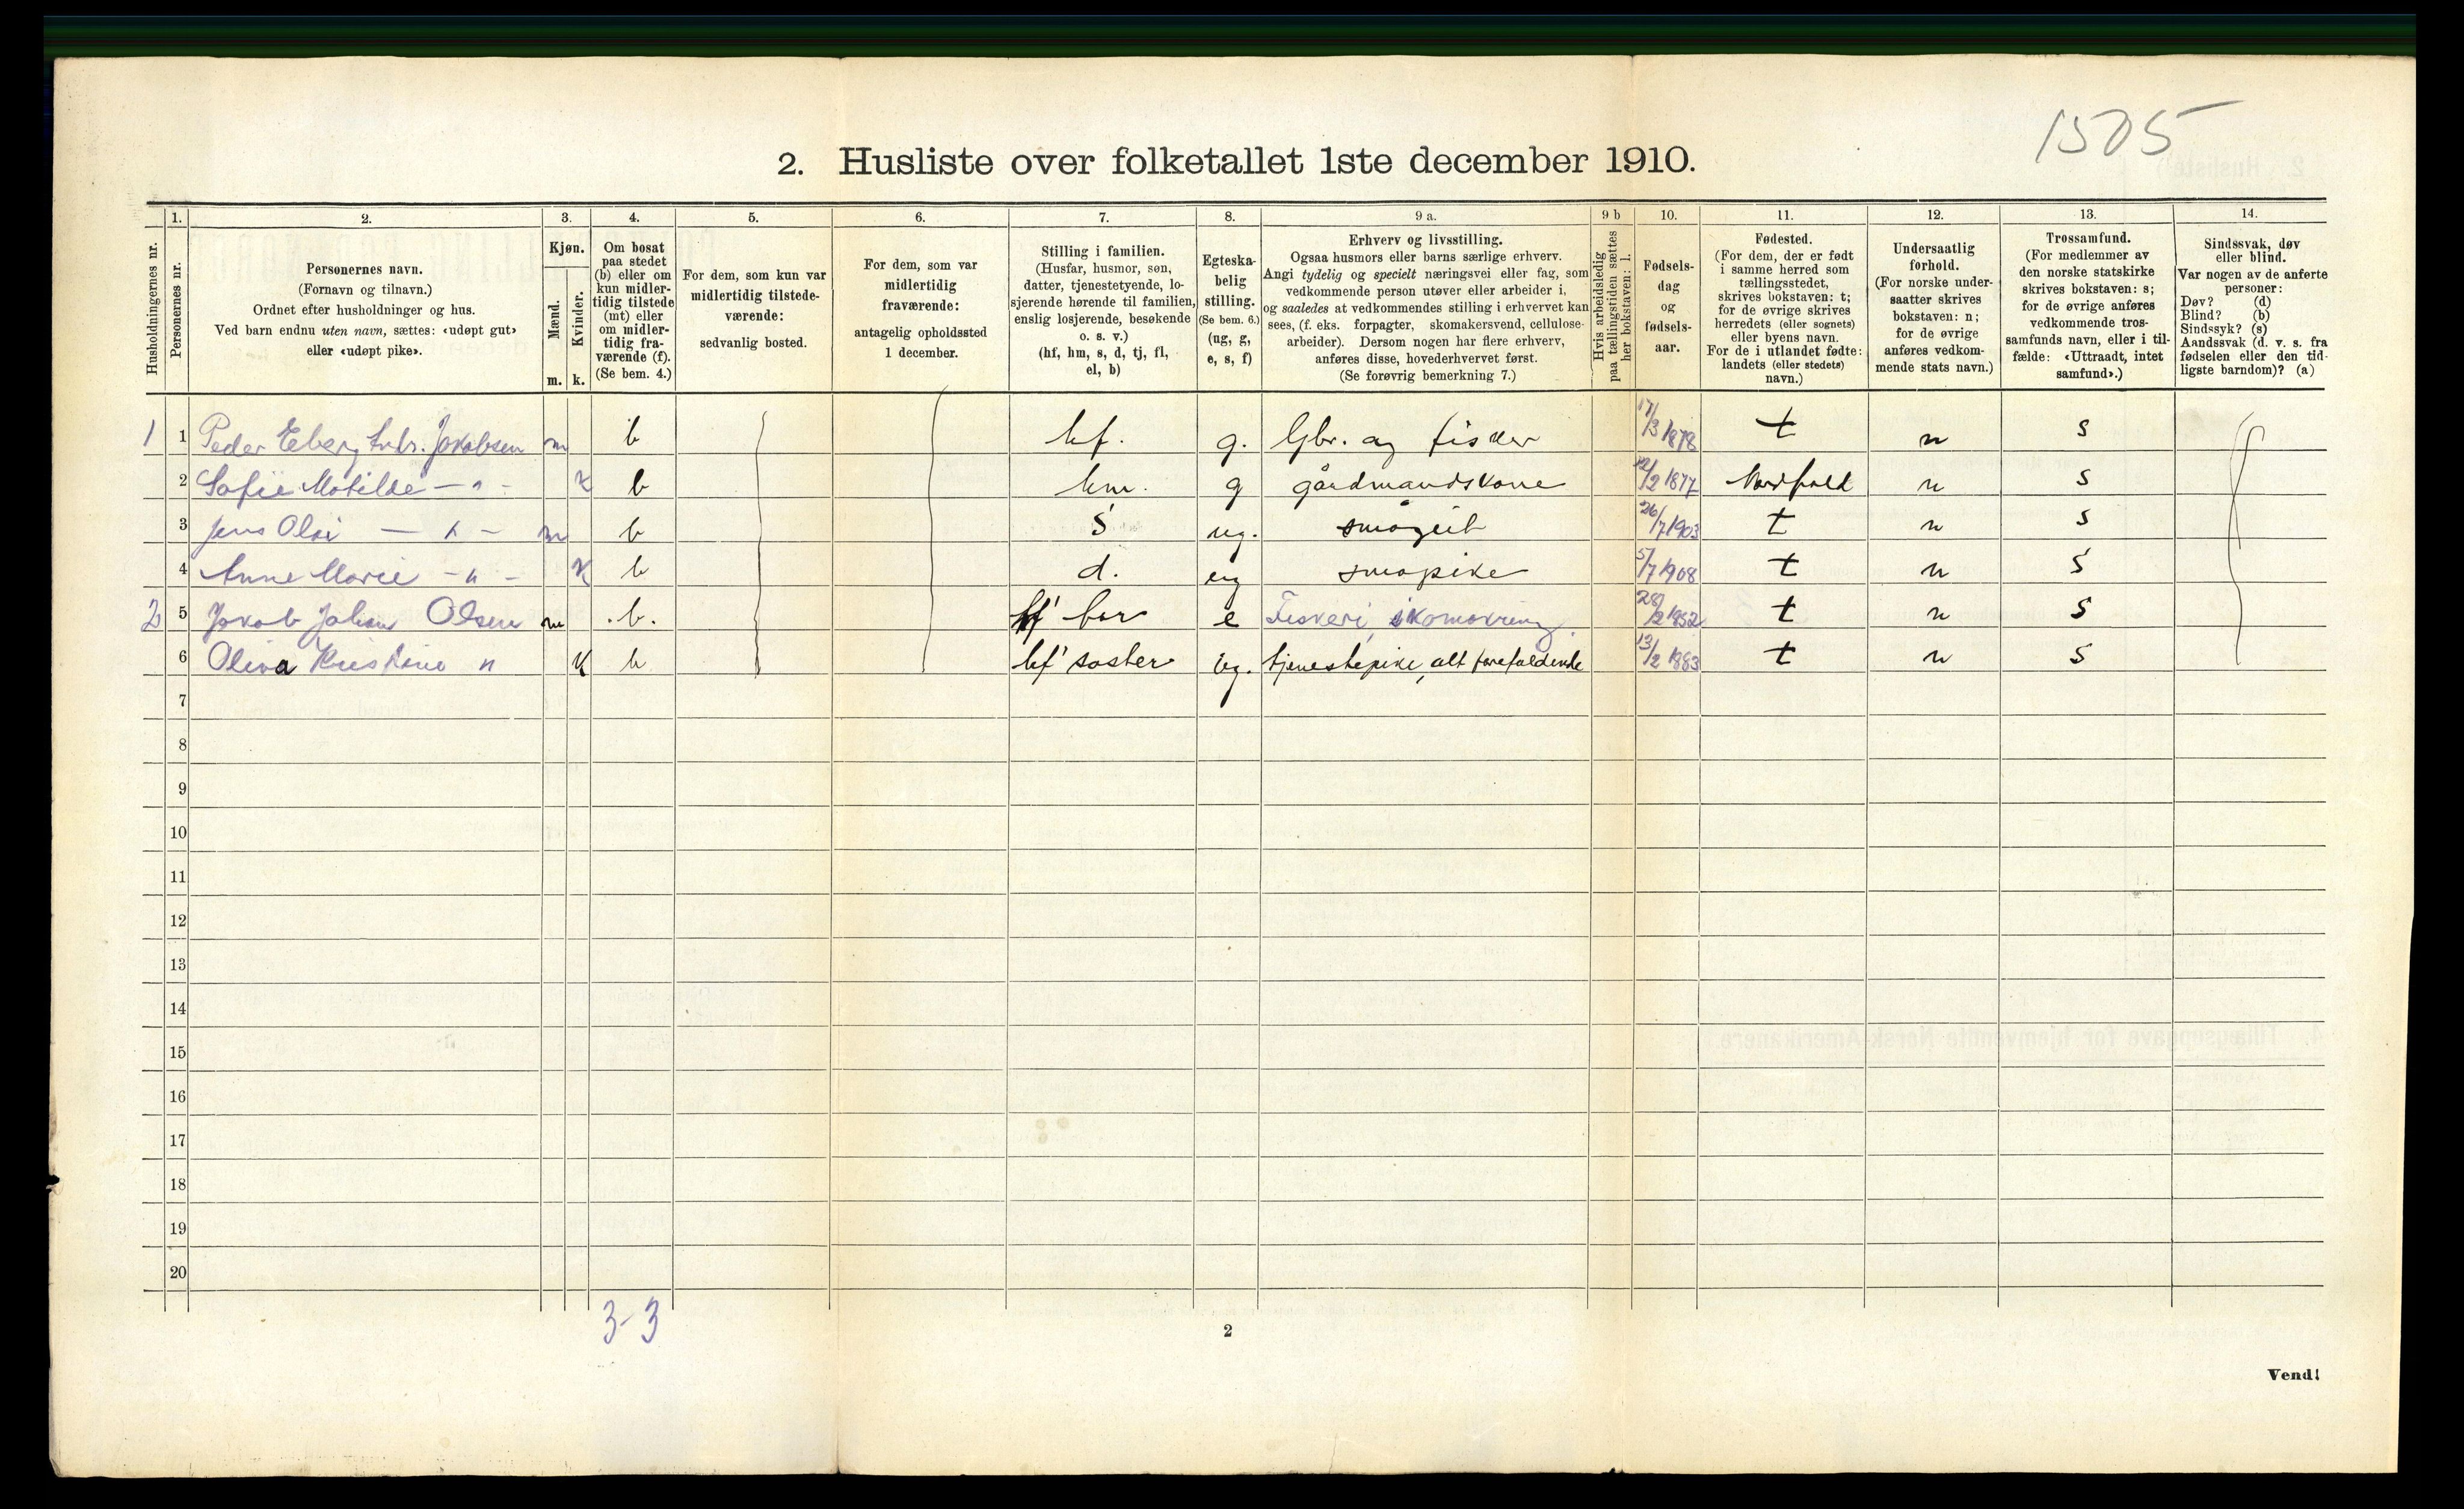 1505
2. Husliste over folketallet 1ste december 1910.
Husholdningernes nr.
1.
Personernes nr.
2.
Personernes navn.
(Fornavn og tilnavn.)
Ordnet efter husholdninger og hus.
Ved barn endnu uten navn, sættes: «udøpt gut»
eller «udøpt pike».
3.
Kjøn.
Mænd.
Kvinder.
m. k.
4.
Om bosat
paa stedet
(b) eller om
kun midler-
tidig tilstede
(mt) eller
om midler-
tidig fra-
værende (f).
(Se bem. 4.)
5.
For dem, som kun var
midlertidig tilstede-
værende:
sedvanlig bosted.
6.
For dem, som var
midlertidig
fraværende:
antagelig opholdssted
1 december.
7.
Stilling i familien.
(Husfar, husmor, søn,
datter, tjenestetyende, lo-
sjerende hørende til familien,
enslig losjerende, besøkende
o. s. v.)
(hf, hm, s, d, tj, fl,
el, b)
8.
Egteska-
belig
stilling.
(Se bem. 6.)
(ug, g,
e, s, f)
9 a.
Erhverv og livsstilling.
Ogsaa husmors eller barns særlige erhverv.
Angi tydelig og specielt næringsvei eller fag, som
vedkommende person utøver eller arbeider i,
og saaledes at vedkommendes stilling i erhvervet kan
sees, (f. eks. forpagter, skomakersvend, cellulose-
arbeider). Dersom nogen har flere erhverv,
anføres disse, hovederhvervet først.
(Se forøvrig bemerkning 7.)
9 b
Hvis arbeidsledig
paa tællingstiden sættes
her bokstaven: l.
10.
Fødsels-
dag
og
fødsels-
aar.
11.
Fødested.
(For dem, der er født
i samme herred som
tællingsstedet,
skrives bokstaven: t;
for de øvrige skrives
herredets (eller sognets)
eller byens navn.
For de i utlandet fødte:
landets (eller stedets)
navn.)
12.
Undersaatlig
forhold.
(For norske under-
saatter skrives
bokstaven: n;
for de øvrige
anføres vedkom-
mende stats navn.)
13.
Trossamfund.
(For medlemmer av
den norske statskirke
skrives bokstaven: s;
for de øvrige anføres
vedkommende tros-
samfunds navn, eller i til-
fælde: «Uttraadt, intet
samfund».)
14.
Sindssvak, døv
eller blind.
Var nogen av de anførte
personer:
Døv? (d)
Blind? (b)
Sindssyk? (s)
Aandssvak (d. v. s. fra
fødselen eller den tid-
ligste barndom)? (a)
1 1 Peder Jakobsen m b hf. g. Gbr. og fisker 17/3 1878 t n s
2 Sofie Matilde — " - k b hm. g gårdmandskone 12/2 1877 Nordfold n s
3 Jens — " - m b s ug. 26/7 1903 t n s
4 Anne Marie - " - k b d. ug småpike 5/7 1908 t n s
2 5 Jakob Johan Olsen m .b. hf' far e Fiskeri, skomakring. 28/2 1852 t n s
6 Oliva Kristine " k b hf' søster ug. tjenestepike, alt forefaldende 13/2 1883 t n s
7
8
9
10
11
12
13
14
15
16
17
18
19
20
3-3
2
Vend!